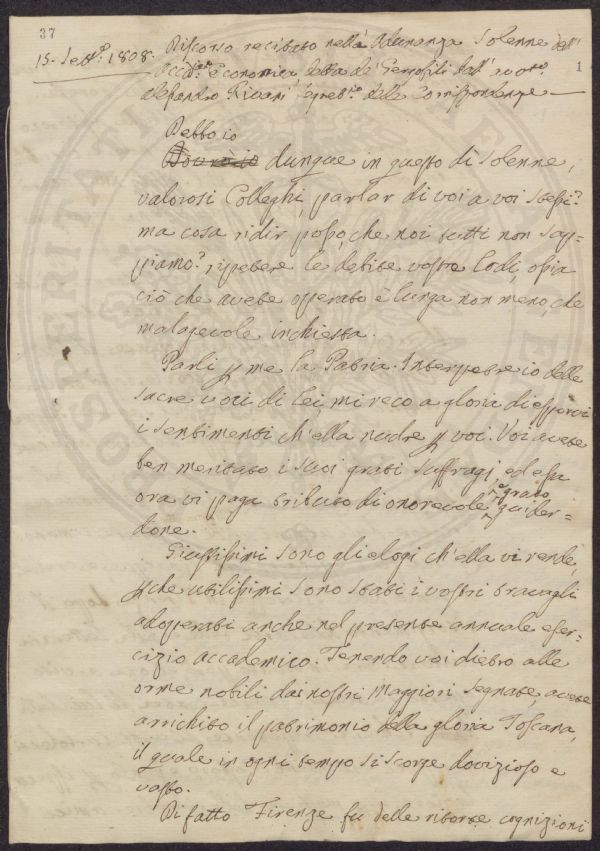 37
15. Sett.e 1808.
Discorso recitato nella Adunanza Solenne dell'
1
Accad.a Economica detta de' Georgofili dall'
Alessandro Rivani Segret.o delle Corrispondenze
Debbo io
dunque in questo dì solenne,
valorosi Colleghi, parlar di voi a voi stessi?
ma cosa ridir posso, che noi tutti non sap=
piamo? ripetere le debite vostre lodi, o sia
ciò che avete operato è lunga non meno, che
malagevole inchiesta.
Parli p me la Patria. Interpetre io delle
sacre voci di lei, mi reco a gloria di esporvi
i sentimenti ch'ella nudre p voi. Voi avete
ben meritato i suoi grati suffragj, ed essa
ora vi paga tributo di onorevole, e grato guider=
done.
Giustissimi sono gli elogi ch'ella vi rende,
pche utilissimi sono stati i vostri travagli
adoperati anche nel presente annuale eser=
cizio accademico. Tenendo voi dietro alle
orme nobili dai nostri Maggiori segnate, avete
arrichito il patrimonio della gloria Toscana,
il quale in ogni tempo si scorge dovizioso e
vasto.
Di fatto Firenze fu delle risorte cognizioni